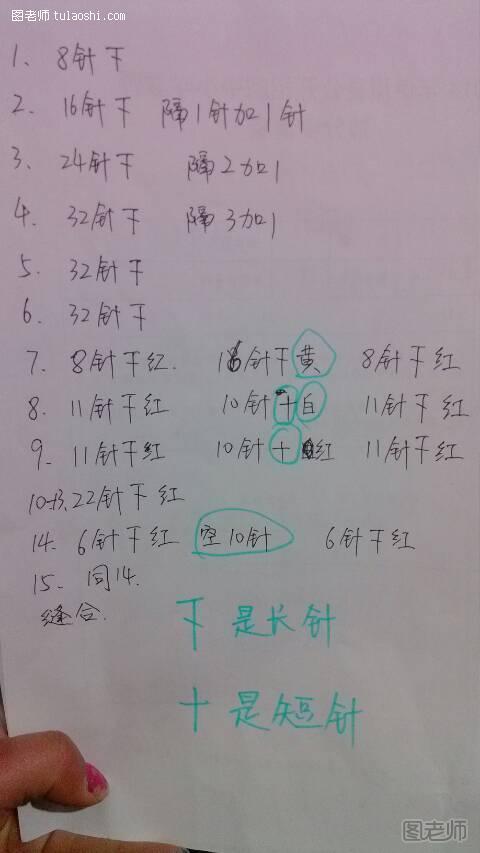 图老师
tulaoshi.com
1. 8针下
2. 16针下 隔1针加1针
3. 24针下 隔2加1
4. 32针下 隔3加1
5. 32针下
6. 32针下
7. 8针下红. 16针下黄 8针下红
8. 11针下红 10针十白 11针下红
9. 11针下红 10针十红 11针下红
10-13. 22针下红
14. 6针下红 空10针 6针下红
15. 同14.
缝合.
下是长针
十是短针
图老师